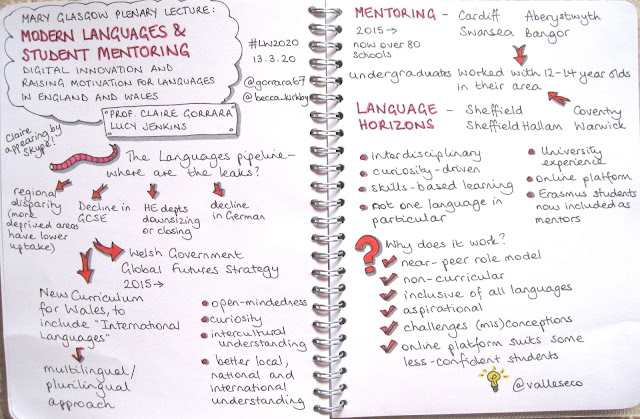 MARY GLASGOW PLENARY LECTURE:
MODERN LANGUAGES &
STUDENT MENTORING
DIGITAL INNOVATION AND
RAISING MOTIVATION FOR LANGUAGES
IN ENGLAND AND WALES
PROF. CLAIRE GORRARA
LUCY JENKINS
#LW2020
13.3.20
@gorrara67
@becca_kirkby
Claire
appearing by
Skype!
The Languages pipeline-
where are the leaks?
regional
disparity
(more
deprived areas
have lower
uptake)
Decline in
GCSE
HE depts
downsizing
or closing
decline
in German
Welsh Government
Global Futures Strategy
2015→
New Curriculum
for Wales, to
include "International
Languages"
multilingual/
plurilingual
approach
open-mindedness
curiosity
intercultural
understanding
better local,
national and
international
understanding
MENTORING - Cardiff Aberystwyth
2015→ Swansea Bangor
now over 80
schools
undergraduates worked with 12-14 year olds
in their area
LANGUAGE - Sheffield Coventry
HORIZONS Sheffield Hallam Warwick
interdisciplinary
curiosity-driven
skills-based learning
not one language in
particular
University
experience
online platform
Erasmus students
now included as
mentors
? Why does it work?
near-peer role model
non-curricular
inclusive of all languages
aspirational
challenges (mis)conceptions
online platform suits some
less-confident students
@valleseco